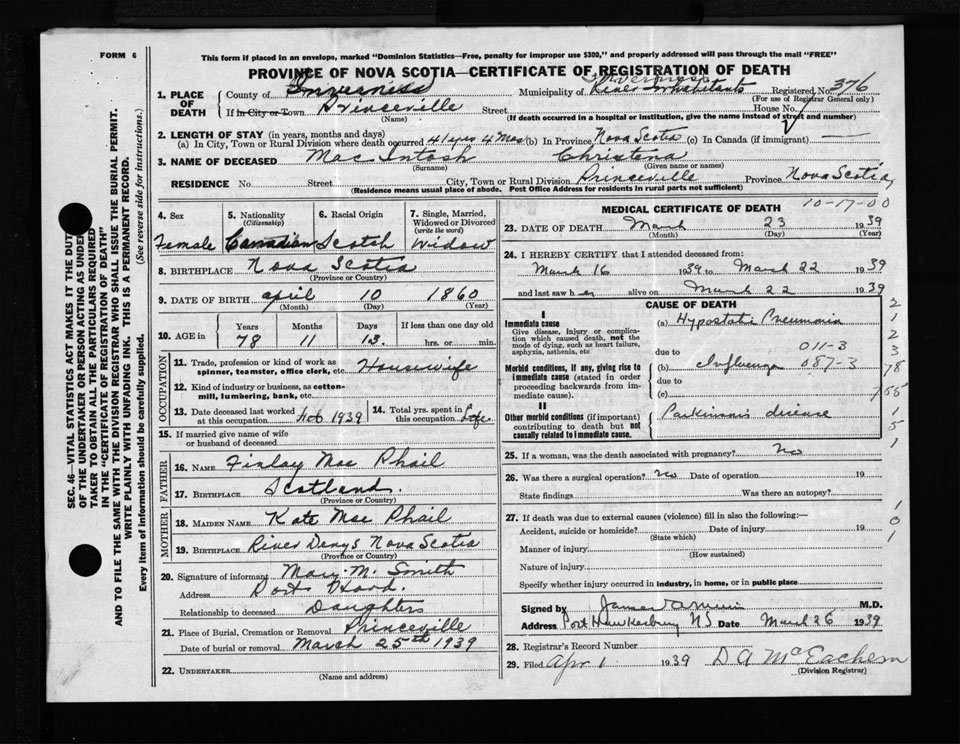 FORM 6
This form if placed in an envelope, marked "Dominion Statistics—Free, penalty for improper use $300," and properly addressed will pass through the mail "FREE"
PROVINCE OF NOVA SCOTIA—CERTIFICATE OF REGISTRATION OF DEATH
1. PLACE OF DEATH
County of Inverness Municipality of Inverness River Inhabitants Registered No. 376
(For use of Registrar General only)
If in City or Town Princeville Street House No.
(Name) (If death occurred in a hospital or institution, give the name instead of street and number)
2. LENGTH OF STAY (in years, months and days)
(a) In City, Town or Rural Division where death occurred 41 yrs 4 Mos (b) In Province Nova Scotia (c) In Canada (if immigrant)
3. NAME OF DECEASED Mac Intosh Christena
(Surname) (Given name or names)
RESIDENCE No. Street City, Town or Rural Division Princeville Province Nova Scotia
(Residence means usual place of abode. Post Office Address for residents in rural parts not sufficient)
4. Sex
Female
5. Nationality (Citizenship)
Canadian
6. Racial Origin
Scotch
7. Single, Married, Widowed or Divorced (write the word)
Widow
8. BIRTHPLACE Nova Scotia
(Province or Country)
9. DATE OF BIRTH April 10 1860
(Month) (Day) (Year)
10. AGE in Years Months Days If less than one day old
78 11 13 hrs. or min.
OCCUPATION
11. Trade, profession or kind of work as spinner, teamster, office clerk, etc. Housewife
12. Kind of industry or business, as cotton-mill, lumbering, bank, etc.
13. Date deceased last worked at this occupation Feb 1939
14. Total yrs. spent in this occupation Life
15. If married give name of wife or husband of deceased
FATHER
16. NAME Finlay Mac Phail
17. BIRTHPLACE Scotland
(Province or Country)
MOTHER
18. MAIDEN NAME Kate Mac Phail
19. BIRTHPLACE River Denys Nova Scotia
(Province or Country)
20. Signature of informant Mary M. Smith
Address Port Hood
Relationship to deceased Daughter
21. Place of Burial, Cremation or Removal Princeville
Date of burial or removal March 25th 1939
22. UNDERTAKER
(Name and address)
MEDICAL CERTIFICATE OF DEATH
10-17-00
23. DATE OF DEATH March 23 1939
(Month) (Day) (Year)
24. I HEREBY CERTIFY that I attended deceased from:
March 16 1939 to March 22 1939
and last saw her alive on March 22 1939
CAUSE OF DEATH
I
Immediate cause
Give disease, injury or complication which caused death, not the mode of dying, such as heart failure, asphyxia, asthenia, etc
(a) Hypostatic Pneumonia
011-3
due to
Morbid conditions, if any, giving rise to immediate cause (stated in order proceeding backwards from immediate cause).
(b) Influenza 087-3
due to
(c)
II
Other morbid conditions (if important) contributing to death but not causally related to immediate cause.
Parkinson's disease
25. If a woman, was the death associated with pregnancy? No
26. Was there a surgical operation? No Date of operation 19
State findings Was there an autopsy?
27. If death was due to external causes (violence) fill in also the following:—
Accident, suicide or homicide? Date of injury 19
(State which)
Manner of injury
(How sustained)
Nature of injury
Specify whether injury occurred in industry, in home, or in public place
Signed by M.D.
Address Port Hawkesbury NS Date March 26 1939
28. Registrar's Record Number
29. Filed Apr 1 1939 D A McEachern
(Division Registrar)
SEC. 46—VITAL STATISTICS ACT MAKES IT THE DUTY
OF THE UNDERTAKER OR PERSON ACTING AS UNDERTAKER TO OBTAIN ALL THE PARTICULARS REQUIRED
IN THE "CERTIFICATE OF DEATH"
AND TO FILE THE SAME WITH THE DIVISION REGISTRAR WHO SHALL ISSUE THE BURIAL PERMIT.
WRITE PLAINLY WITH UNFADING INK. THIS IS A PERMANENT RECORD.
Every item of information should be carefully supplied. (See reverse side for instructions.)